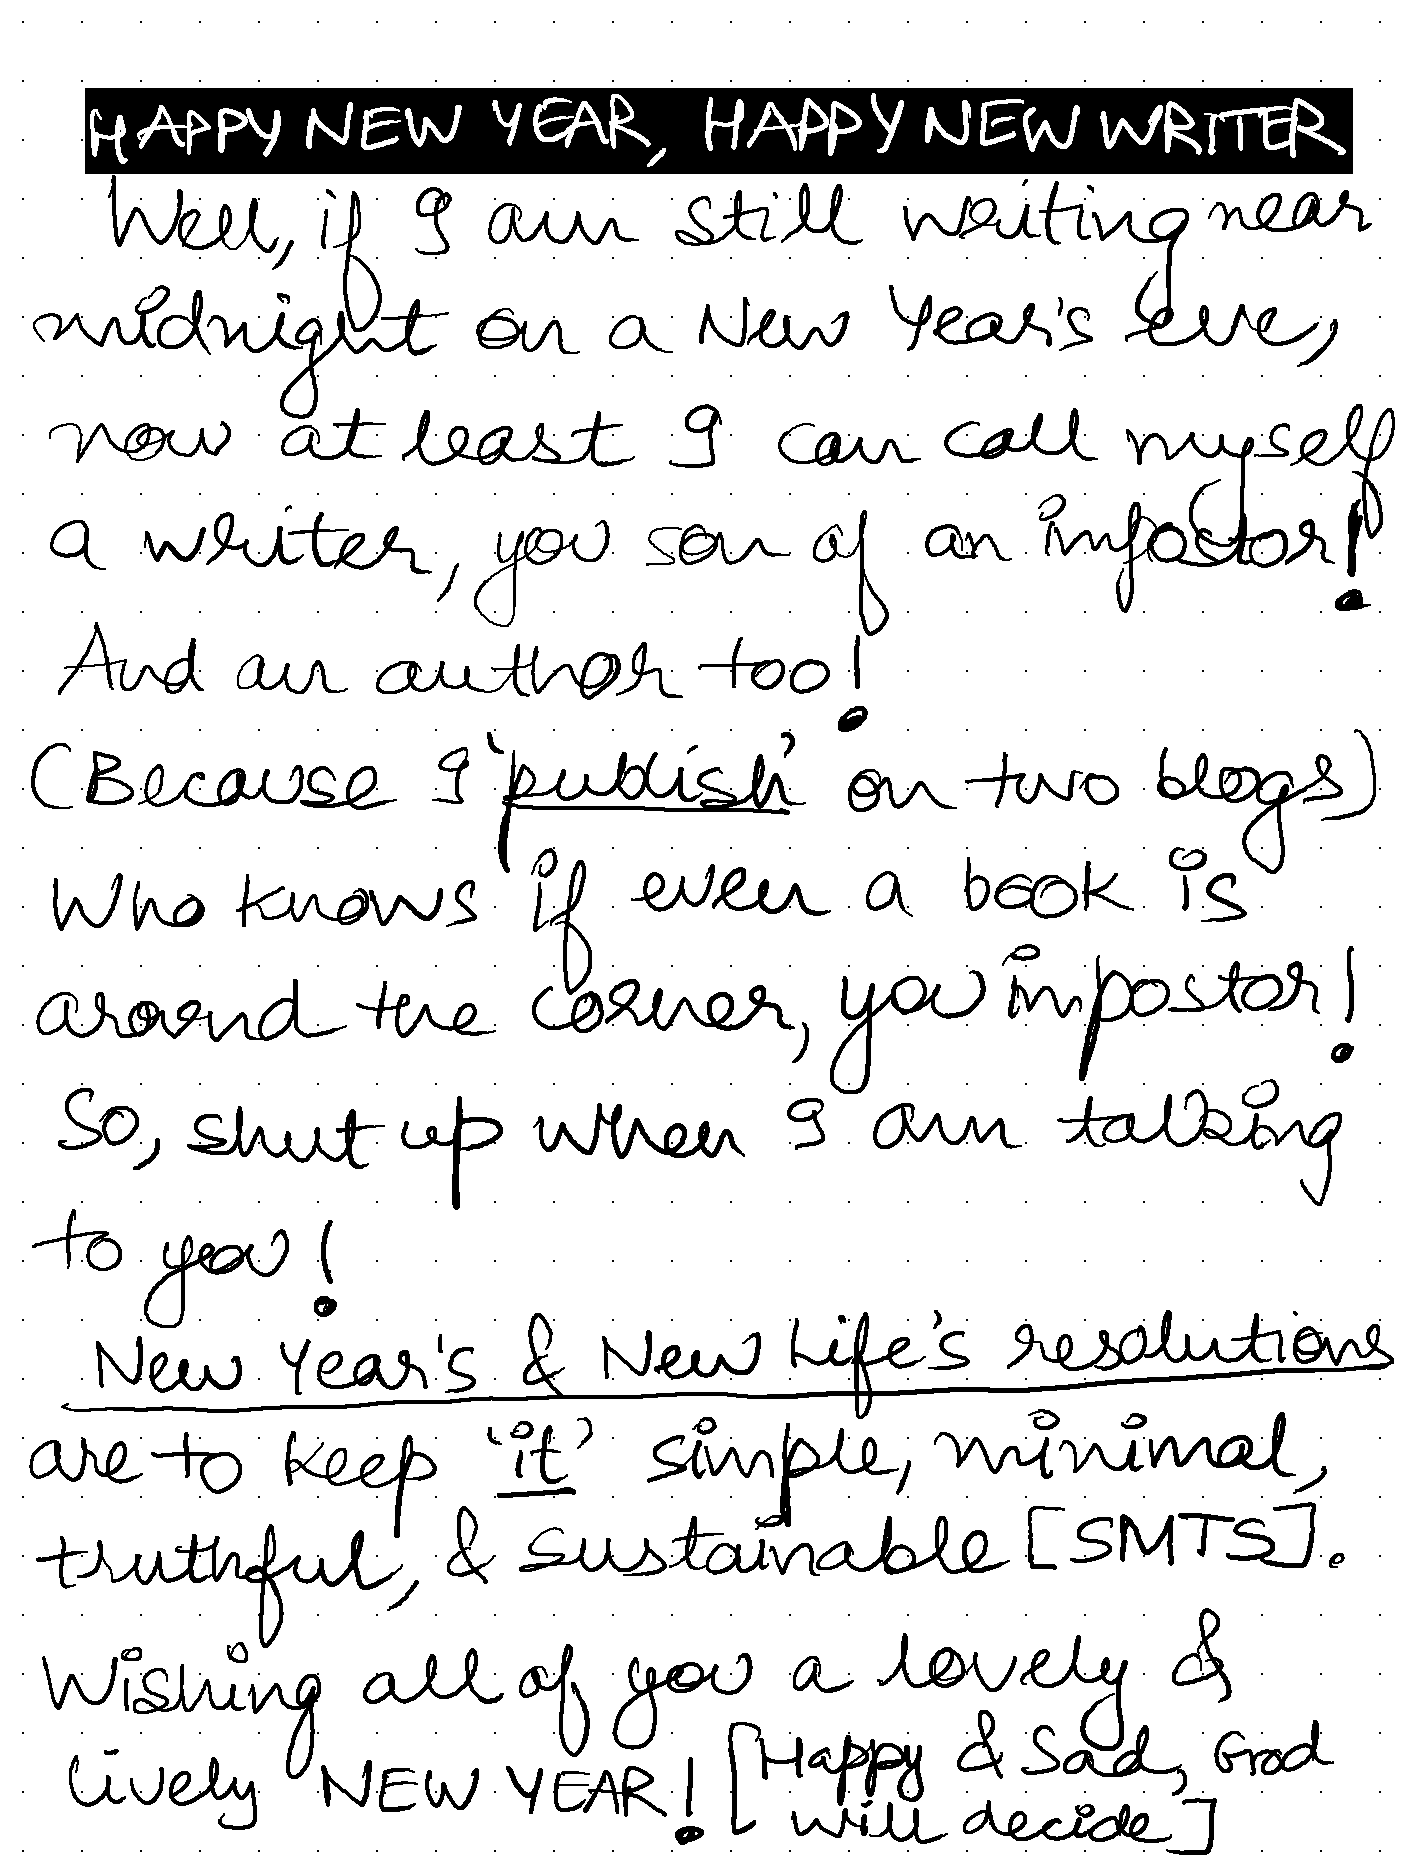 HAPPY NEW YEAR, HAPPY NEW WRITER
Well, if I am still writing near
midnight on a New Year's eve,
now at least I can call myself
a writer, you son of an impostor!
And an author too!
(Because I 'publish' on two blogs)
Who knows if even a book is
around the corner, you impostor!
So, shut up when I am talking
to you!
New Year's & New Life's resolutions
are to keep 'it' simple, minimal,
truthful, & sustainable [SMTS].
Wishing all of you a lovely &
lively NEW YEAR! [Happy & Sad, God
will decide]